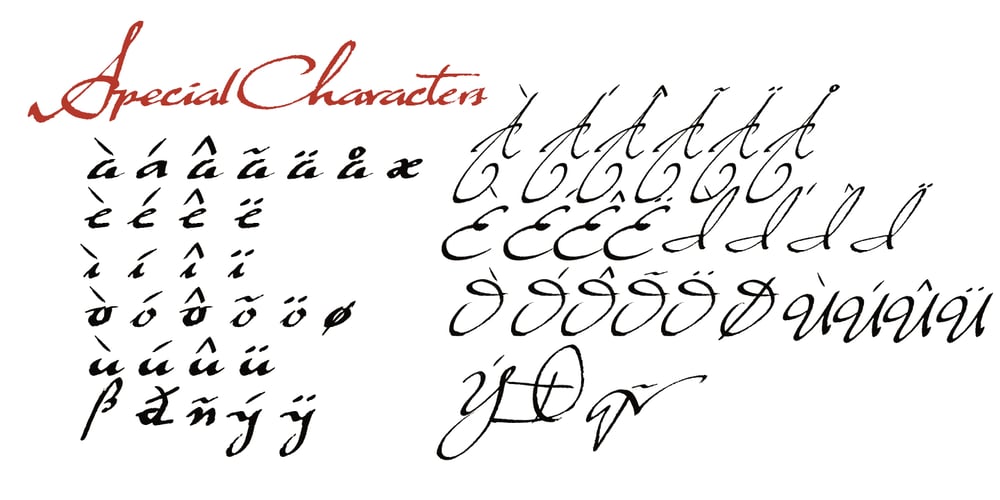 Special Characters
à á â ã ä å æ
è é ê ë
ì í î ï
ò ó ô õ ö ø
ù ú û ü
ß ð ñ ý ÿ
À Á Â Ã Ä Å
È É Ê Ë Ì Í Î Ï
Ò Ó Ô Õ Ö Ø Ù Ú Û Ü
Ý Ð Ñ